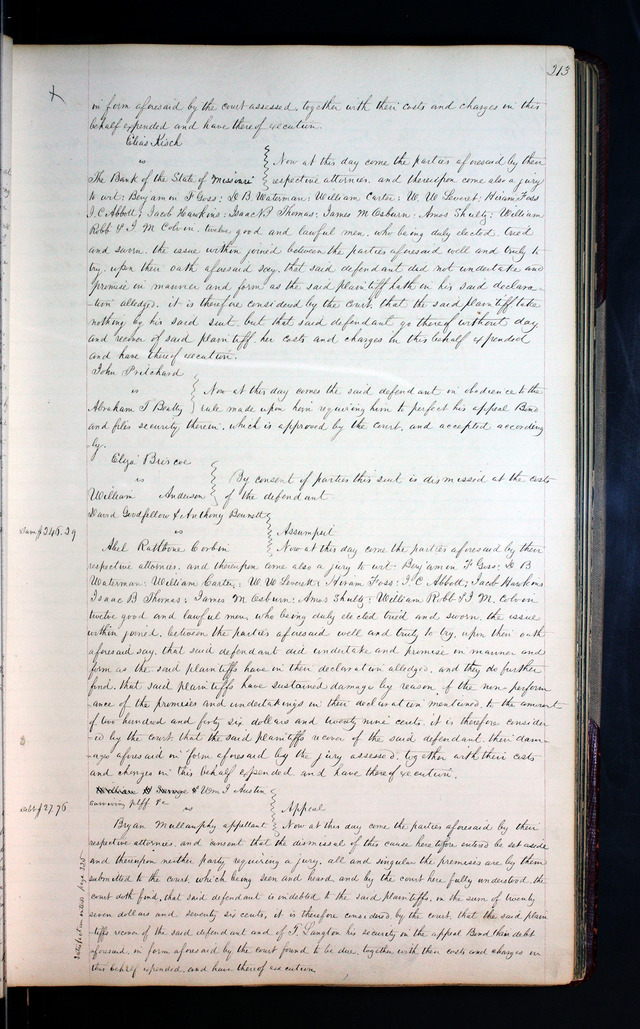 213
in form aforesaid by the court assessed, together with their costs and charges in this
behalf expended and have thereof execution.
Elias Kisch
vs
The Bank of the State of Missouri
Now at this day come the parties aforesaid by their
respective attornies, and thereupon come also a jury
to wit: Benjamin F Goss; D. B. Waterman; William Carter; W. W Leveret; Hiram Foss
I. C Abbott; Jacob Hawkins; Isaac N P Thomas; James M Osburn; Amos Shultz; William
Robb & I. M Colvin, twelve good and lawful men, who being duly elected, tried
and sworn, the issue within joined between the parties aforesaid well and truly to
try, upon their oath aforesaid say, that said defendant did not undertake and
promise in manner and form as the said plaintiff hath in his said declara-
tion alledged. it is therefore considered by the court, that the said plaintiff take
nothing by his said suit, but that said defendant go thereof without day
and recover of said plaintiff her costs and charges in this behalf expended
and have thereof execution.
John Pritchard
vs
Abraham T Beatty
Now at this day comes the said defendant in obedience to the
rule made upon him requiring him to perfect his appeal Bond
and files security therein, which is approved by the court, and accepted according
-ly.
Eliza Briscoe
vs
William Anderson
By consent of parties this suit is dismissed at the costs
of the defendant
Dam $246.29
David Goodfellow & Anthony Bennett
vs
Abel Rathbone Corbin
Assumpsit
Now at this day come the parties aforesaid by their
respective attornies, and thereupon come also a jury to wit: Benjamin F Goss; D B
Waterman; William Carter; W. W Leverett; Hiram Foss; I. C Abbott; Jacob Hawkins
Isaac B Thomas; James M Osburn; Amos Shultz; William Robb & I M. Colvin
twelve good and lawful men, who being duly elected tried and sworn, the issue
within joined, between the parties aforesaid well and truly to try, upon their oath
aforesaid say, that said defendant did undertake and promise in manner and
form as the said plaintiffs have in their declaration alledged, and they do further
find, that said plaintiffs have sustained damage by reason of the non perform
ance of the promises and undertakings in their declaration mentioned, to the amount
of two hundred and forty six dollars and twenty nine cents, it is therefore consider-
ed by the court, that the said plaintiffs recover of the said defendant, their dam-
ages aforesaid in form aforesaid by the jury assessed, together with their costs
and charges in this behalf expended and have thereof execution.
Debt $27.76
William H Savage & Wm I Austin
surviving plff &c
vs
Bryan Mullanphy appellant
Appeal
Now at this day come the parties aforesaid by their
respective attornies, and consent that the dismissal of this cause heretofore entered be set aside
and thereupon neither party requiring a jury, all and singular the premises are by them
submitted to the court, which being seen and heard, and by the court here fully understood, the
court doth find, that said defendant is indebted to the said plaintiffs, in the sum of twenty
seven dollars and seventy six cents, it is therefore considered by the court, that the said plain
tiffs recover of the said defendant and of T. Langton his security in the appeal Bond, their debt
aforesaid, in form aforesaid by the court found to be due, together with their costs and charges in
this behalf expended, and have thereof execution
Satisfaction entered page 235